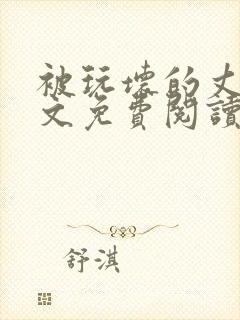 被玩坏的丈
文免費閱讀
舒淇